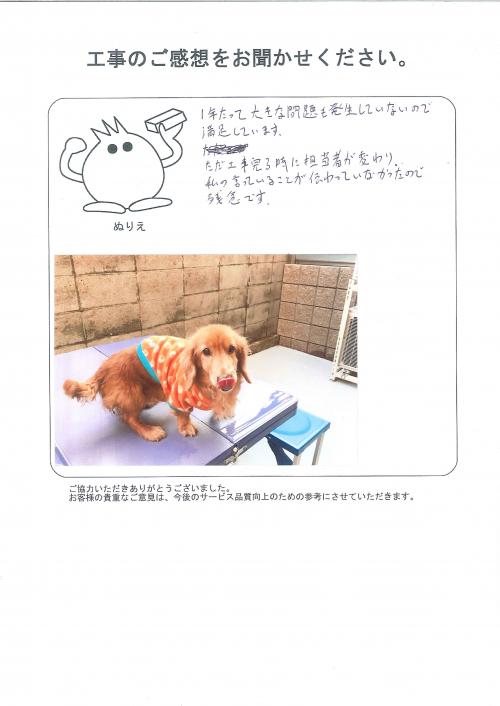 工事のご感想をお聞かせください。
1年たって大きな問題も発生していないので
満足しています。
ただ工事完了時に担当者が変わり、
私の言っていることが伝わっていなかったので
残念です。
ぬりえ
ご協力いただきありがとうございました。
お客様の貴重なご意見は、今後のサービス品質向上のための参考にさせていただきます。